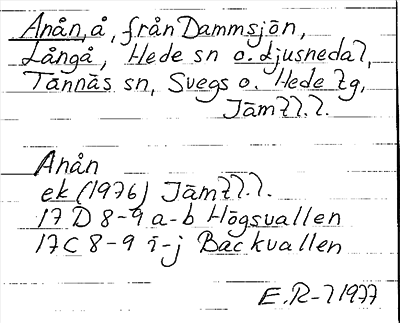 Anån, å, från Dammsjön,
Långå, Hede sn o. Ljusnedal,
Tännäs sn, Svegs o. Hede tg,
Jämtl.l.
Anån
ek (1976) Jämtl.l.
17 D 8-9 a-b Högsvallen
17C 8-9 i-j Backvallen
E.R-l 1977